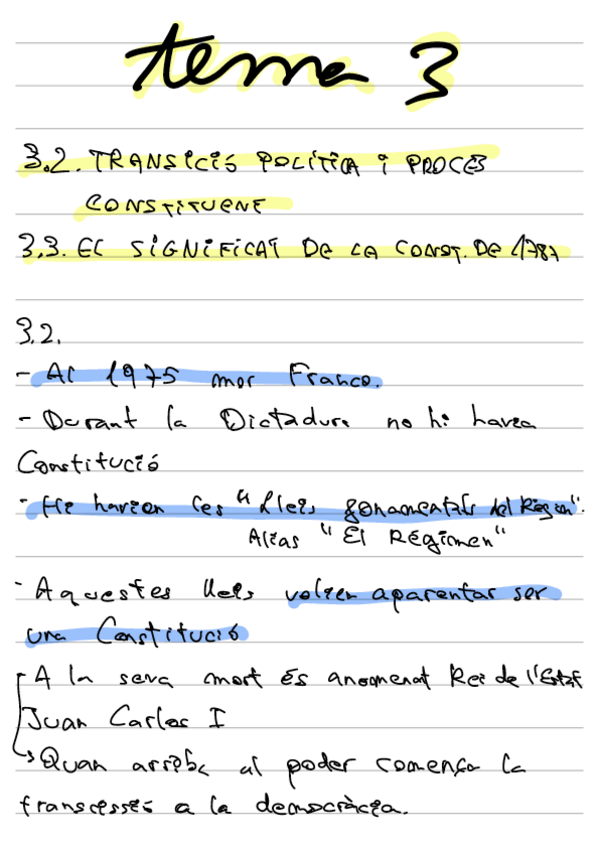 tema 3
3.2. TRANSICIÓ POLÍTICA i PROCES
CONSTITUENT
3.3. EL SIGNIFICAT DE LA CONST. DE 1787
3.2.
- Al 1975 mor Franco.
- Durant la Dictadura no hi havia
Constitució
- Hi havien les "Lleis fonamentals del Règim".
Alias "El Régimen"
- Aquestes lleis volien aparentar ser
una Constitució
- A la seva mort és anomenat Rei de l'Estat
Juan Carlos I
Quan arriba al poder comença la
a la democràcia.